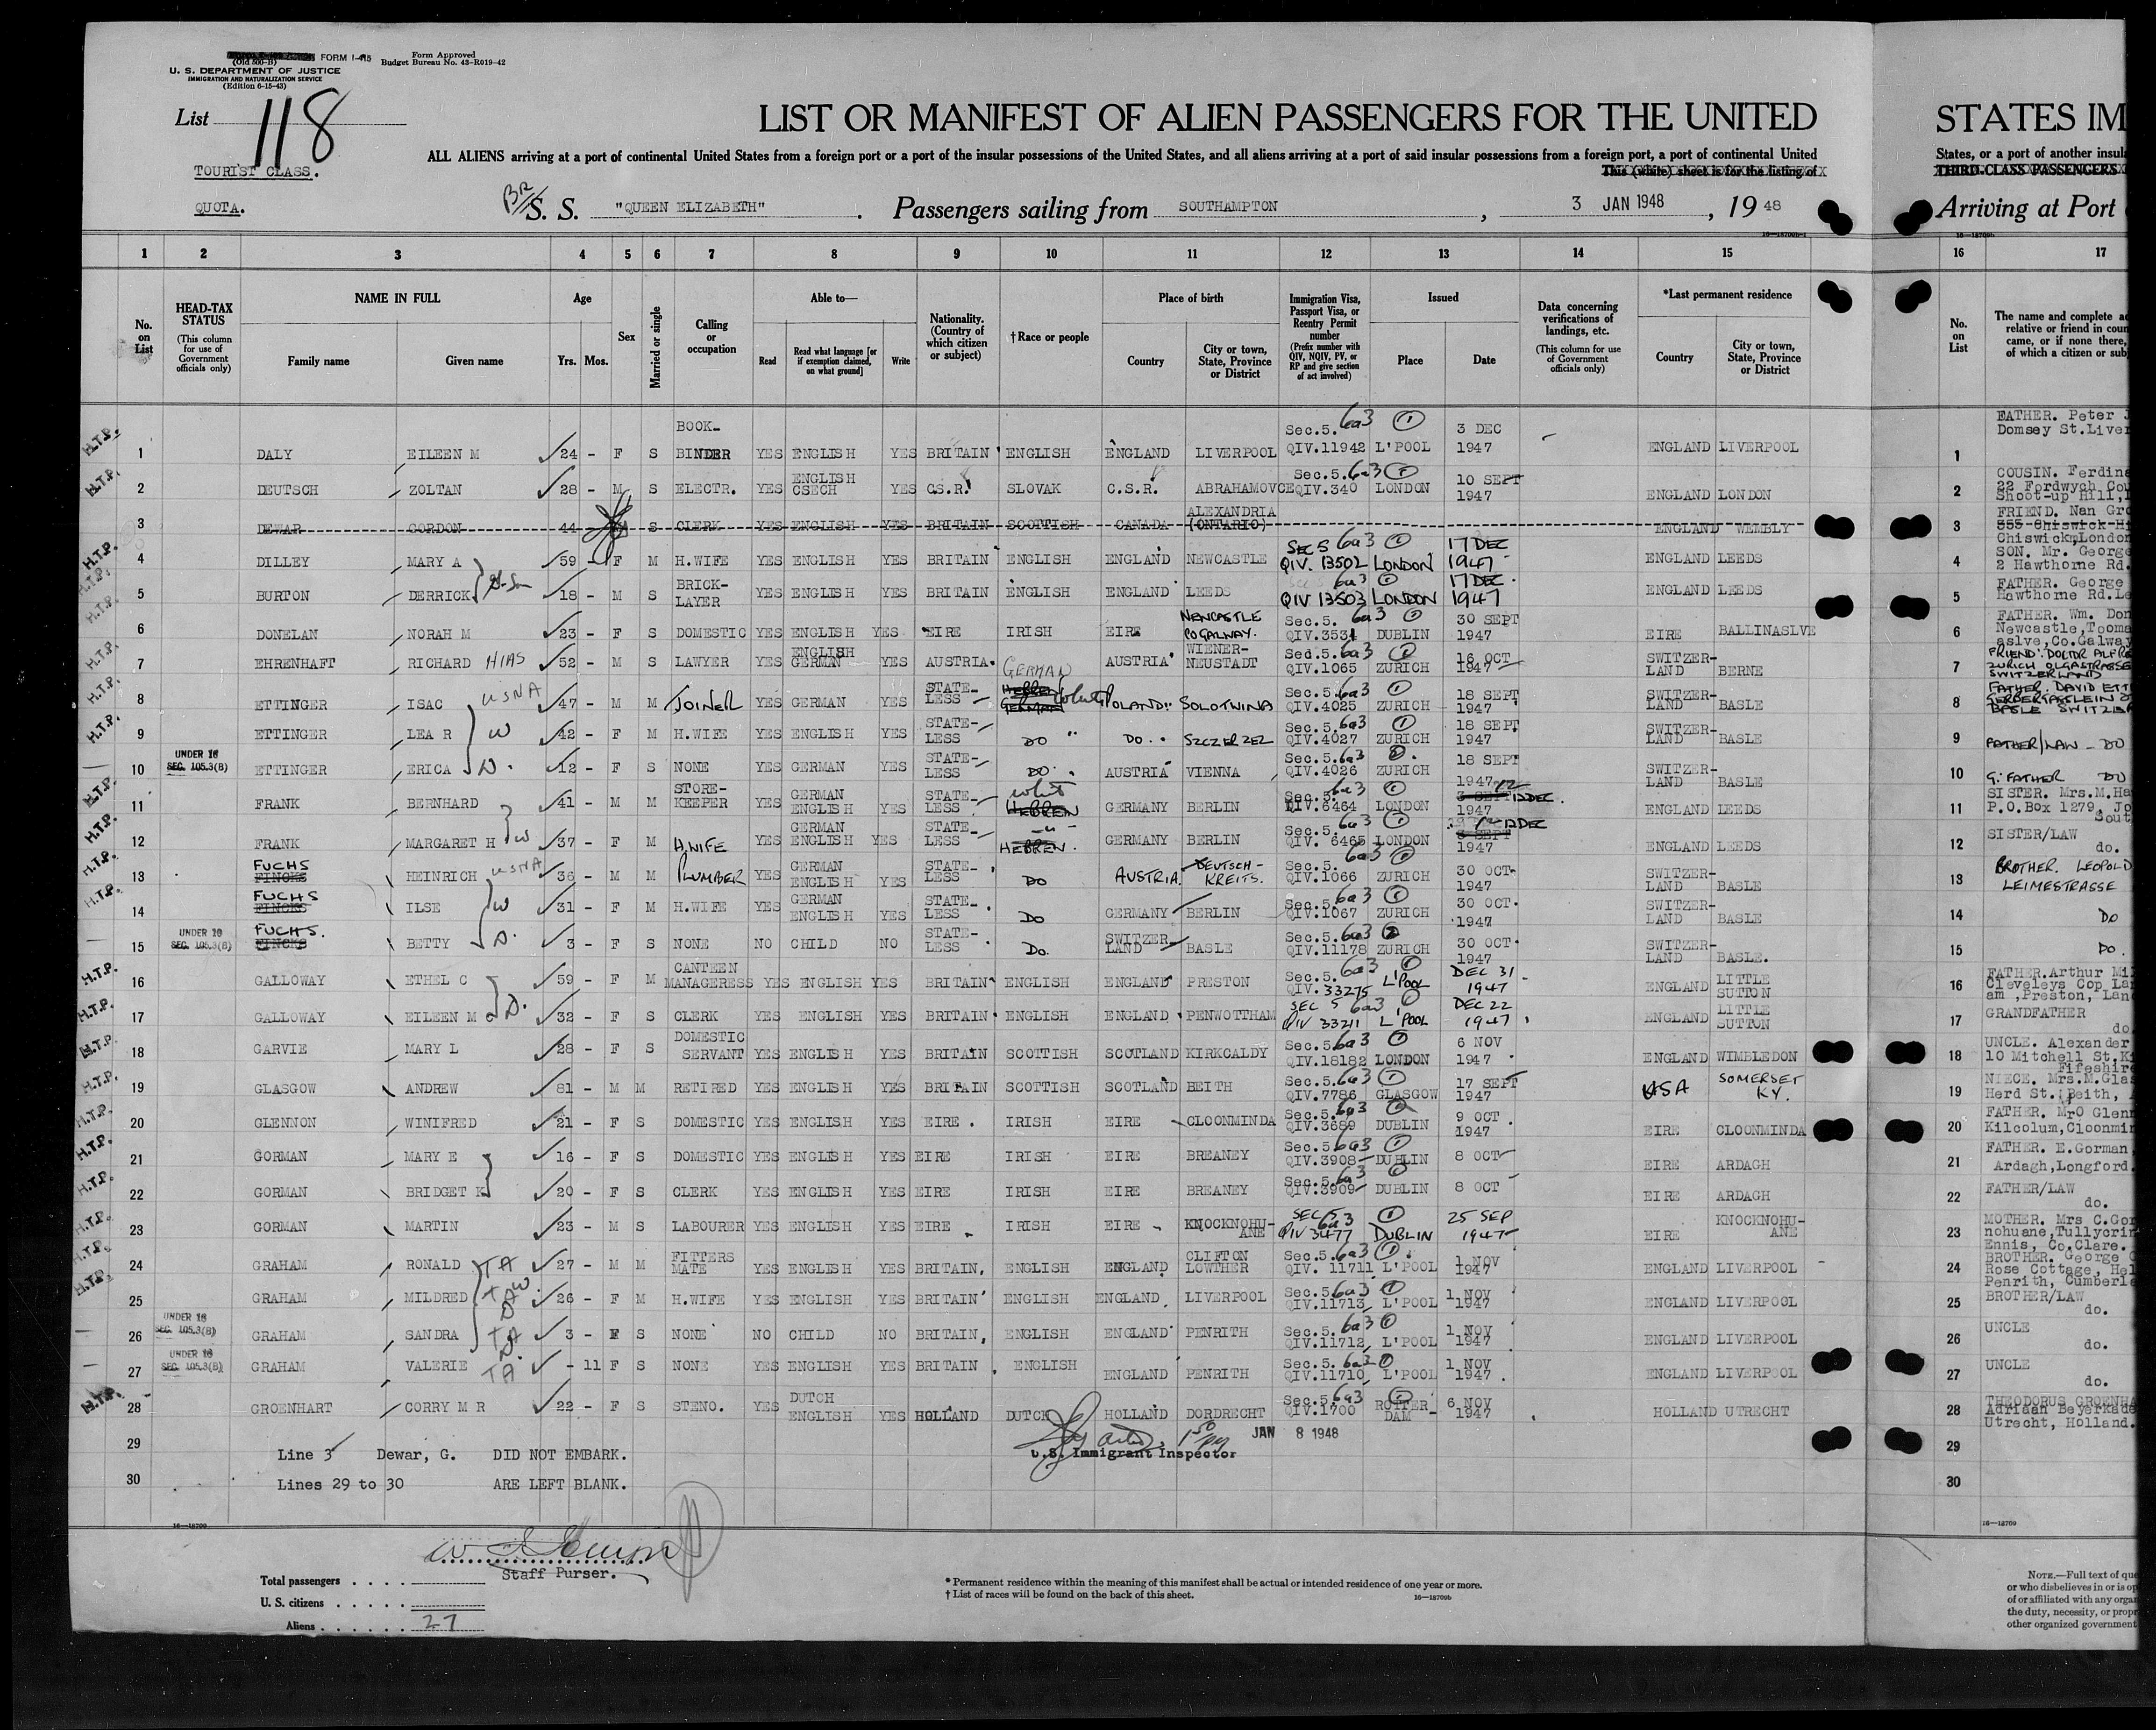 FORM I-415 Form Approved
(Old 500-B) Budget Bureau No. 43-R019-42
U. S. DEPARTMENT OF JUSTICE
IMMIGRATION AND NATURALIZATION SERVICE
(Edition 6-15-43)
List 118
LIST OR MANIFEST OF ALIEN PASSENGERS FOR THE UNITED STATES IM
ALL ALIENS arriving at a port of continental United States from a foreign port or a port of the insular possessions of the United States, and all aliens arriving at a port of said insular possessions from a foreign port, a port of continental United States, or a port of another insul
TOURIST CLASS.
This (white) sheet is for the listing of THIRD-CLASS PASSENGERS
QUOTA.
Br/S. S. "QUEEN ELIZABETH". Passengers sailing from SOUTHAMPTON, 3 JAN 1948, 19 48 Arriving at Port
1 2 3 4 5 6 7 8 9 10 11 12 13 14 15 16 17
No. on List
HEAD-TAX STATUS (This column for use of Government officials only)
NAME IN FULL Family name Given name
Age Yrs. Mos.
Sex
Married or single
Calling or occupation
Able to— Read Read what language [or if exemption claimed, on what ground] Write
Nationality. (Country of which citizen or subject)
†Race or people
Place of birth Country City or town, State, Province or District
Immigration Visa, Passport Visa, or Reentry Permit number (Prefix number with QIV, NQIV, PV, or RP and give section of act involved)
Issued Place Date
Data concerning verifications of landings, etc. (This column for use of Government officials only)
*Last permanent residence Country City or town, State, Province or District
No. on List
The name and complete ad relative or friend in coun came, or if none there, of which a citizen or sub
H.T.P. 1 DALY EILEEN M 24 - F S BOOK-BINDER YES ENGLISH YES BRITAIN ENGLISH ENGLAND LIVERPOOL Sec.5. 6a3 QIV.11942 L'POOL 3 DEC 1947 ENGLAND LIVERPOOL 1 FATHER. Peter J Domsey St.Liver
H.T.P. 2 DEUTSCH ZOLTAN 28 - M S ELECTR. YES ENGLISH CSECH YES C.S.R. SLOVAK C.S.R. ABRAHAMOVCE Sec.5. 6a3 QIV.340 LONDON 10 SEPT 1947 ENGLAND LONDON 2 COUSIN. Ferdina 22 Fordwych Cou Shoot-up Hill,
3 DEWAR GORDON 44 S CLERK YES ENGLISH YES BRITAIN SCOTTISH CANADA ALEXANDRIA (ONTARIO) ENGLAND WEMBLY 3 FRIEND. Nan Gro 555 Chiswick Hi Chiswick,London
H.T.P. 4 DILLEY MARY A 59 - F M H.WIFE YES ENGLISH YES BRITAIN ENGLISH ENGLAND NEWCASTLE SEC 5 6a3 QIV. 13502 LONDON 17 DEC 1947 ENGLAND LEEDS 4 SON. Mr. George 2 Hawthorne Rd.
H.T.P. 5 BURTON DERRICK 18 - M S BRICK-LAYER YES ENGLISH YES BRITAIN ENGLISH ENGLAND LEEDS 6a3 QIV 13503 LONDON 17 DEC 1947 ENGLAND LEEDS 5 FATHER. George Hawthorne Rd.Le
H.T.P. 6 DONELAN NORAH M 23 - F S DOMESTIC YES ENGLISH YES EIRE IRISH EIRE NEWCASTLE CO GALWAY. Sec.5. 6a3 QIV.3531 DUBLIN 30 SEPT 1947 EIRE BALLINASLVE 6 FATHER. Wm. Don Newcastle,Tooma aslve,Co.Galway
H.T.P. 7 EHRENHAFT RICHARD HIAS 52 - M S LAWYER YES ENGLISH GERMAN YES AUSTRIA. GERMAN AUSTRIA WIENER-NEUSTADT Sed.5. 6a3 QIV.1065 ZURICH 16 OCT 1947 SWITZER-LAND BERNE 7 FRIEND: DOCTOR ALFR ZURICH OLGASTRASSE SWITZERLAND
H.T.P. 8 ETTINGER ISAC USNA 47 - M M JOINER YES GERMAN YES STATE-LESS HEBREW GERMAN White POLAND SOLOTWINA Sec.5. 6a3 QIV.4025 ZURICH 18 SEPT 1947 SWITZER-LAND BASLE 8 FATHER. DAVID ETT GERBERGASSLEIN BASLE SWITZER
H.T.P. 9 ETTINGER LEA R W 42 - F M H.WIFE YES ENGLISH YES STATE-LESS DO " DO. SZCZERZEL Sec.5. 6a3 QIV.4027 ZURICH 18 SEPT. 1947 SWITZER-LAND BASLE 9 FATHER/LAW - DO
UNDER 16 SEC. 105.3(B) 10 ETTINGER ERICA D. 12 - F S NONE YES GERMAN YES STATE-LESS DO. AUSTRIA VIENNA Sec.5. 6a3 QIV.4026 ZURICH 18 SEPT 1947 SWITZER-LAND BASLE 10 G. FATHER DO
H.T.P. 11 FRANK BERNHARD 41 - M M STORE-KEEPER YES GERMAN ENGLISH YES STATE-LESS white HEBREW GERMANY BERLIN Sec.5. 6a3 QIV.6464 LONDON 3 SEPT 12 DEC. 1947 ENGLAND LEEDS 11 SISTER. Mrs.M.Ha P.O.Box 1279, Jo Sout
H.T.P. 12 FRANK MARGARET H W 37 - F M H.WIFE YES GERMAN ENGLISH YES STATE-LESS -"- HEBREW. GERMANY BERLIN Sec.5. 6a3 QIV. 6465 LONDON 3 SEPT 12 DEC 1947 ENGLAND LEEDS 12 SISTER/LAW do.
H.T.P. 13 FUCHS FINCKS HEINRICH USNA 36 - M M PLUMBER YES GERMAN ENGLISH YES STATE-LESS DO AUSTRIA. DEUTSCH-KREITS. Sec.5. 6a3 QIV.1066 ZURICH 30 OCT. 1947 SWITZER-LAND BASLE 13 BROTHER. LEOPOLD LEIMESTRASSE
H.T.P. 14 FUCHS FINCKS ILSE W 31 - F M H.WIFE YES GERMAN ENGLISH YES STATE-LESS DO GERMANY BERLIN Sec.5. 6a3 QIV.1067 ZURICH 30 OCT. 1947 SWITZER-LAND BASLE 14 DO
UNDER 16 SEC. 105.3(B) 15 FUCHS. FINCKS BETTY D. 3 - F S NONE NO CHILD NO STATE-LESS DO. SWITZER-LAND BASLE Sec.5. 6a3 QIV.11178 ZURICH 30 OCT. 1947 SWITZER-LAND BASLE. 15 DO.
H.T.P. 16 GALLOWAY ETHEL C 59 - F M CANTEEN MANAGERESS YES ENGLISH YES BRITAIN ENGLISH ENGLAND PRESTON Sec.5. 6a3 QIV.33275 L'POOL DEC 31 1947 ENGLAND LITTLE SUTTON 16 FATHER.Arthur Mil Cleveleys Cop Lan am ,Preston, Lanc
H.T.P. 17 GALLOWAY EILEEN M D. 32 - F S CLERK YES ENGLISH YES BRITAIN ENGLISH ENGLAND PENWOTTHAM SEC 5 6a3 QIV 33211 L'POOL DEC 22 1947 ENGLAND LITTLE SUTTON 17 GRANDFATHER do.
H.T.P. 18 GARVIE MARY L 28 - F S DOMESTIC SERVANT YES ENGLISH YES BRITAIN SCOTTISH SCOTLAND KIRKCALDY Sec.5. 6a3 QIV.18182 LONDON 6 NOV 1947 ENGLAND WIMBLEDON 18 UNCLE. Alexander 10 Mitchell St,Ki Fifeshire
H.T.P. 19 GLASGOW ANDREW 81 - M M RETIRED YES ENGLISH YES BRITAIN SCOTTISH SCOTLAND BEITH Sec.5. 6a3 QIV.7786 GLASGOW 17 SEPT 1947 USA SOMERSET KY. 19 NIECE. Mrs.M.Glas Herd St. Beith,
H.T.P. 20 GLENNON WINIFRED 21 - F S DOMESTIC YES ENGLISH YES EIRE. IRISH EIRE CLOONMINDA Sec.5. 6a3 QIV.3689 DUBLIN 9 OCT 1947 EIRE CLOONMINDA 20 FATHER. MrO Glenn Kilcolum,Cloonmin
H.T.P. 21 GORMAN MARY E 16 - F S DOMESTIC YES ENGLISH YES EIRE IRISH EIRE BREANEY Sec.5. 6a3 QIV.3908 DUBLIN 8 OCT EIRE ARDAGH 21 FATHER. E.Gorman, Ardagh,Longford.
H.T.P. 22 GORMAN BRIDGET K 20 - F S CLERK YES ENGLISH YES EIRE IRISH EIRE BREANEY Sec.5. 6a3 QIV.3909 DUBLIN 8 OCT EIRE ARDAGH 22 FATHER/LAW do.
H.T.P. 23 GORMAN MARTIN 23 - M S LABOURER YES ENGLISH YES EIRE IRISH EIRE KNOCKNOHU-ANE SEC 5 6a3 QIV 3477 DUBLIN 25 SEP 1947 EIRE KNOCKNOHU-ANE 23 MOTHER. Mrs C.Gor nohuane,Tullycrin Ennis, Co.Clare.
H.T.P. 24 GRAHAM RONALD TA 27 - M M FITTERS MATE YES ENGLISH YES BRITAIN. ENGLISH ENGLAND CLIFTON LOWTHER Sec.5. 6a3 QIV. 11711 L'POOL 1 NOV 1947 ENGLAND LIVERPOOL 24 BROTHER. George G Rose Cottage, Hel Penrith, Cumberla
H.T.P. 25 GRAHAM MILDRED TA W 26 - F M H.WIFE YES ENGLISH YES BRITAIN ENGLISH ENGLAND. LIVERPOOL Sec.5. 6a3 QIV.11713, L'POOL 1 NOV 1947 ENGLAND LIVERPOOL 25 BROTHER/LAW do.
UNDER 16 SEC. 105.3(B) 26 GRAHAM SANDRA TA D 3 - F S NONE NO CHILD NO BRITAIN, ENGLISH ENGLAND PENRITH Sec.5. 6a3 QIV.11712, L'POOL 1 NOV 1947 ENGLAND LIVERPOOL 26 UNCLE do.
UNDER 16 SEC. 105.3(B) 27 GRAHAM VALERIE TA D. - 11 F S NONE YES ENGLISH YES BRITAIN ENGLISH ENGLAND PENRITH Sec.5. 6a3 QIV.11710, L'POOL 1 NOV 1947. ENGLAND LIVERPOOL 27 UNCLE do.
H.T.P. 28 GROENHART CORRY M R 22 - F S STENO. YES DUTCH ENGLISH YES HOLLAND DUTCH HOLLAND DORDRECHT Sec.5. 6a3 QIV.1700 ROTTER-DAM 6 NOV 1947 HOLLAND UTRECHT 28 THEODORUS GROENHA Adriaan Beyerkade Utrecht, Holland.
29 Line 3 Dewar, G. DID NOT EMBARK. JAN 8 1948 29
U.S. Immigrant Inspector
30 Lines 29 to 30 ARE LEFT BLANK. 30
16—18709
Staff Purser.
Total passengers
U. S. citizens
Aliens 27
* Permanent residence within the meaning of this manifest shall be actual or intended residence of one year or more.
† List of races will be found on the back of this sheet. 16—18709b
NOTE.—Full text of que
or who disbelieves in or is op
of or affiliated with any organ
the duty, necessity, or propr
other organized government